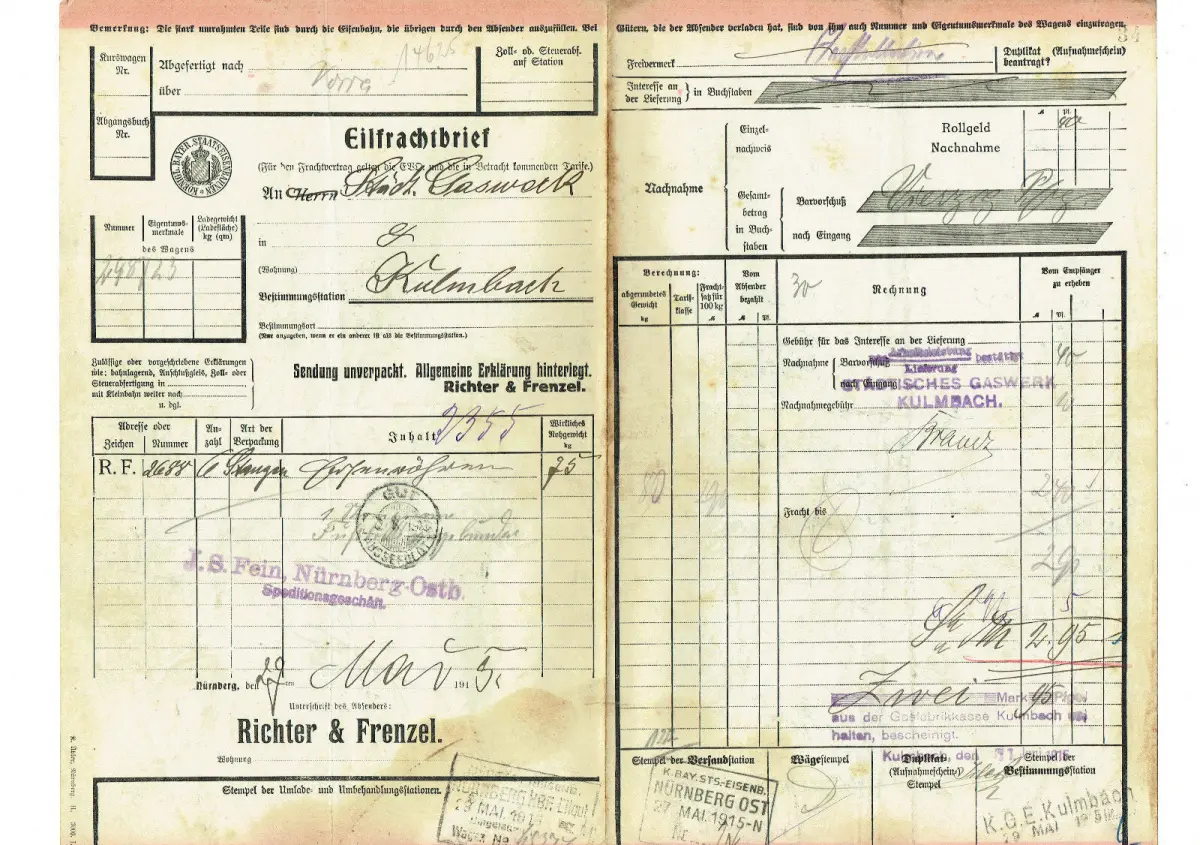 Bemerkung: Die stark umrahmten Teile sind durch die Eisenbahn, die übrigen durch den Absender auszufüllen. Bei Gütern, die der Absender verladen hat, sind von ihm auch Nummer und Eigentumsmerkmale des Wagens einzutragen.
34
Kurswagen
Nr.
Abgefertigt nach
Vorra
über
Zoll- ob. Steuerabf.
auf Station
Abgangsbuch
Nr.
KOENIGL. BAYER. STAATSEISENBAHNEN
Eilfrachtbrief
(Für den Frachtvertrag gelten die EVO. und die in Betracht kommenden Tarife.)
An Herrn Städt. Gaswerk
in
(Wohnung)
Bestimmungsstation Kulmbach
Bestimmungsort
(Nur anzugeben, wenn er ein anderer ist als die Bestimmungsstation.)
Nummer
Eigentums-
merkmale
Ladegewicht
(Ladefläche)
kg (qm)
des Wagens
Zulässige oder vorgeschriebene Erklärungen
wie: bahnlagernd, Anschlußgleis, Zoll- oder
Steuerabfertigung in
mit Kleinbahn weiter nach
u. dgl.
Sendung unverpackt. Allgemeine Erklärung hinterlegt.
Richter & Frenzel.
Adresse oder
Zeichen Nummer
An-
zahl
Art der
Verpackung
Inhalt
2355
Wirkliches
Rohgewicht
kg
R. F. 2688 6 Stangen Eisenröhren 75
GUT
J. S. Fein, Nürnberg-Ostb.
Speditionsgeschäft.
Nürnberg, den 27ten Mai 1915
Unterschrift des Absenders:
Richter & Frenzel.
Wohnung
Stempel der Umlade- und Umbehandlungsstationen.
NÜRNBERG HBF Eilgut
29 MAI. 1915
Wagen No
Freivermerk
Duplikat (Aufnahmeschein)
beantragt?
Interesse an
der Lieferung
in Buchstaben
Nachnahme
Einzel-
nachweis
Rollgeld
Nachnahme
40
Gesamt-
betrag
in Buch-
staben
Barvorschuß
Vierzig Pfg
nach Eingang
Berechnung:
abgerundetes
Gewicht
kg
Tarif-
klasse
Fracht-
satz für
100 kg
Vom
Absender
bezahlt
30
Rechnung
Vom Empfänger
zu erheben
Gebühr für das Interesse an der Lieferung
Nachnahme
Barvorschuß
40
nach Eingang
Nachnahmegebühr
10
Arbeitsleistung
Lieferung
bestätigt
STÄDTISCHES GASWERK
KULMBACH.
80
240
Fracht bis
290
5
2.95
Zwei Mark 95 Pfge.
aus der Gasfabrikkasse Kulmbach er-
halten, bescheinigt.
Kulmbach, den 31. MAI 1915
Stempel der Versandstation
K. BAY. STS.-EISENB.
NÜRNBERG OST
27 MAI. 1915-N
Wägestempel
Duplikat-
(Aufnahmeschein)
Stempel
Stempel der
Bestimmungsstation
K.G.E. Kulmbach
29 MAI 1915